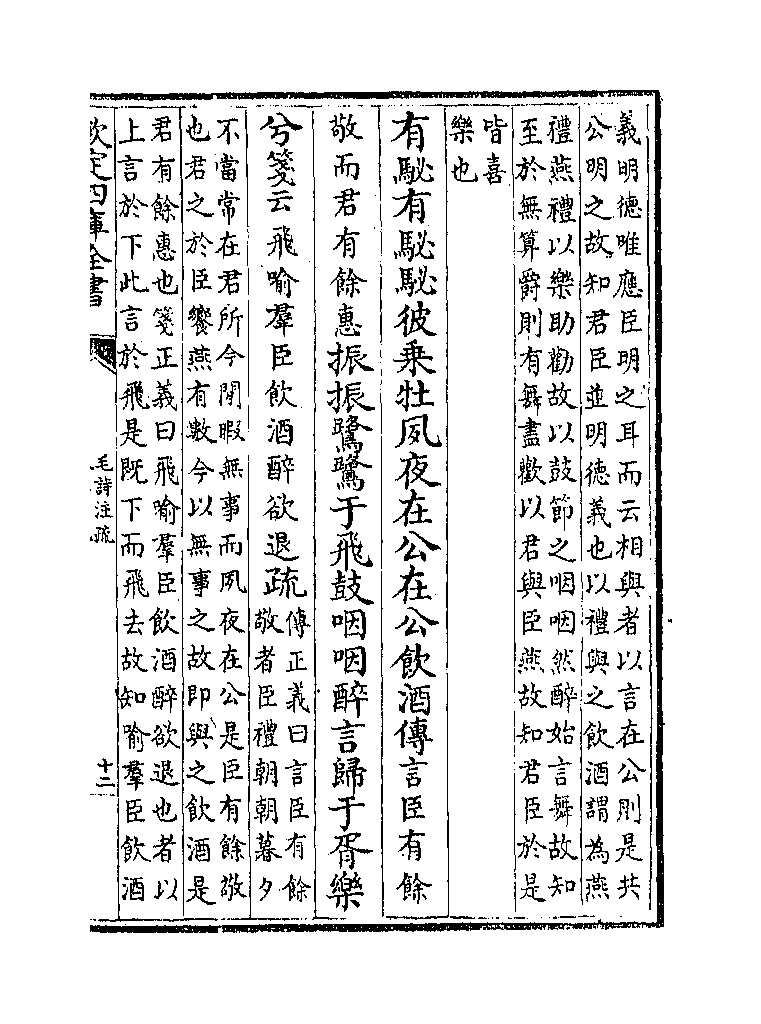 義明德唯應臣明之耳而云相與者以言在公則是共
公明之故知君臣並明德義也以禮與之飲酒謂為燕
禮燕禮以樂助勸故以鼓節之咽咽然醉始言舞故知
至於無算爵則有舞盡歡以君與臣燕故知君臣於是
皆喜
樂也
有駜有駜駜彼乗牡夙夜在公在公飲酒傳言臣有餘
敬而君有餘惠振振鷺鷺于飛鼓咽咽醉言歸于胥樂
兮箋云飛喻羣臣飲酒醉欲退疏傳正義曰言臣有餘
敬者臣禮朝朝暮夕
不當常在君所今閒暇無事而夙夜在公是臣有餘敬
也君之於臣饗燕有數今以無事之故即與之飲酒是
君有餘惠也箋正義曰飛喻羣臣飲酒醉欲退也者以
上言於下此言於飛是既下而飛去故知喻羣臣飲酒
欽定四庫全書
毛詩注疏
十二